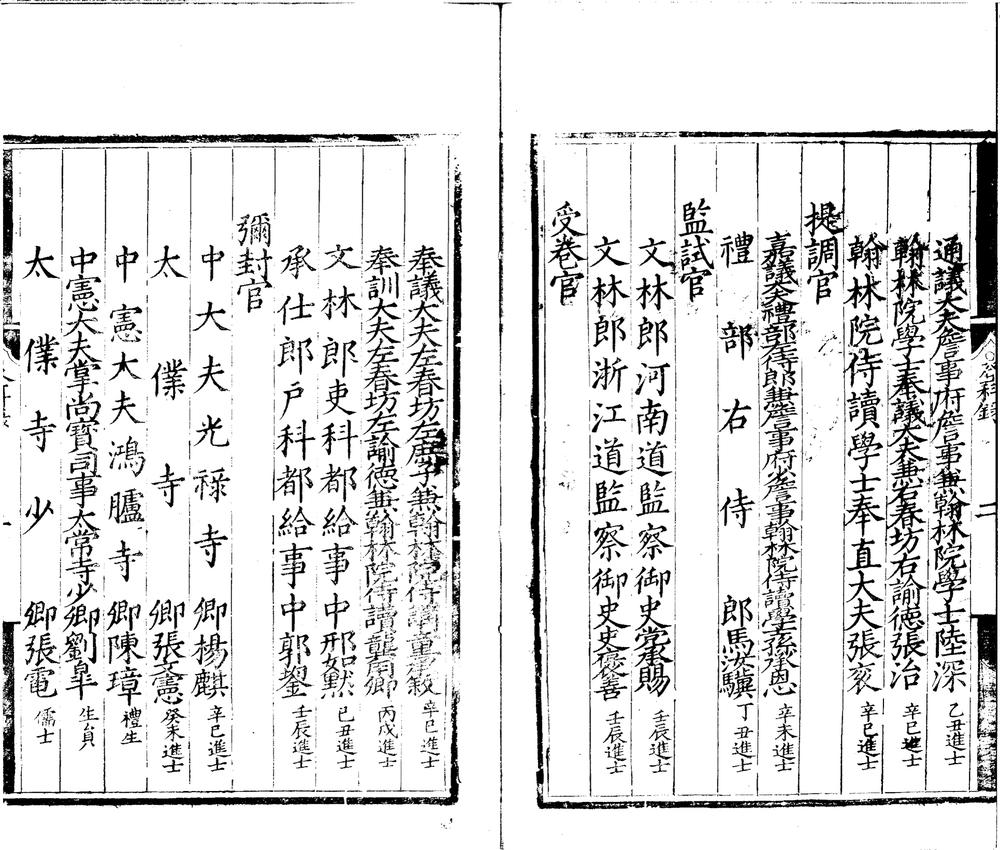 通議大夫詹事府詹事兼翰林院學士陸深乙丑進士
翰林院學士奉議大夫兼右春坊右諭德張治辛巳進士
翰林院侍讀學士奉直大夫張衮辛巳進士
提調官
嘉議大夫禮部左侍郎兼詹事府少詹事翰林院侍讀學士孫承恩辛未進士
禮部右侍郎馬汝驥丁丑進士
監試官
文林郎河南道監察御史党承賜壬辰進士
文林郎浙江道監察御史史褒善壬辰進士
受卷官
奉議大夫左春坊左庶子兼翰林院侍講童承敘辛巳進士
奉訓大夫左春坊左諭德兼翰林院侍讀龔用卿丙戌進士
文林郎吏科都給事中邢如默已丑進士
承仕郎戶科都給事中郭鋆壬辰進士
彌封官
中大夫光祿寺卿楊麒辛巳進士
太僕寺卿張憲癸未進士
中憲大夫鴻臚寺卿陳璋禮生
中憲大夫掌尚寶司事太常寺少卿劉臯生員
太僕寺少卿張電儒士
二